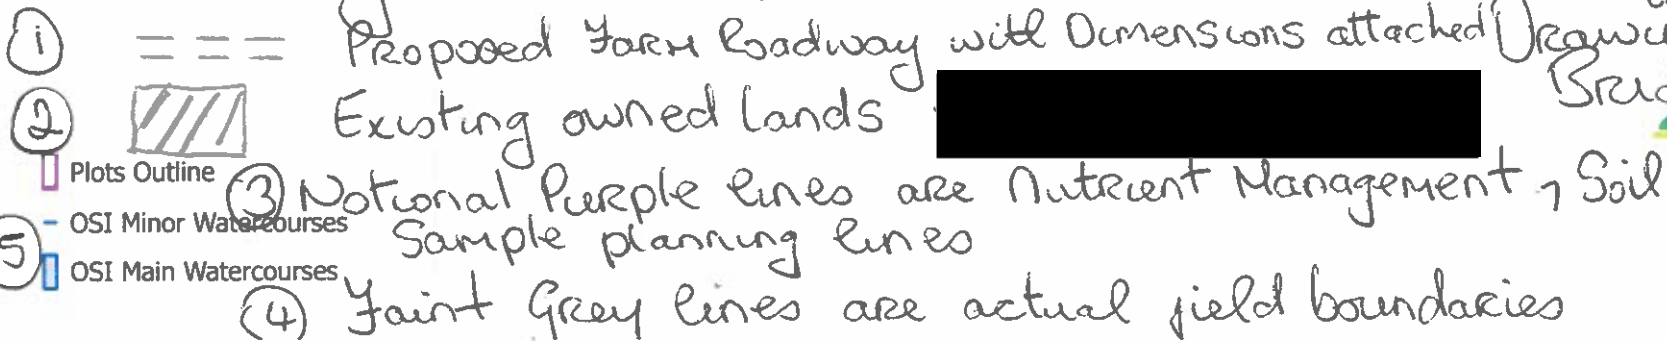 1 Proposed Farm Roadway with Dimensions attached
2 Existing owned lands
Plots Outline
3 Notional Purple lines are Nutrient Management, Soil
OSI Minor Watercourses
Sample planning lines
5 OSI Main Watercourses
4 Faint Grey lines are actual field boundaries